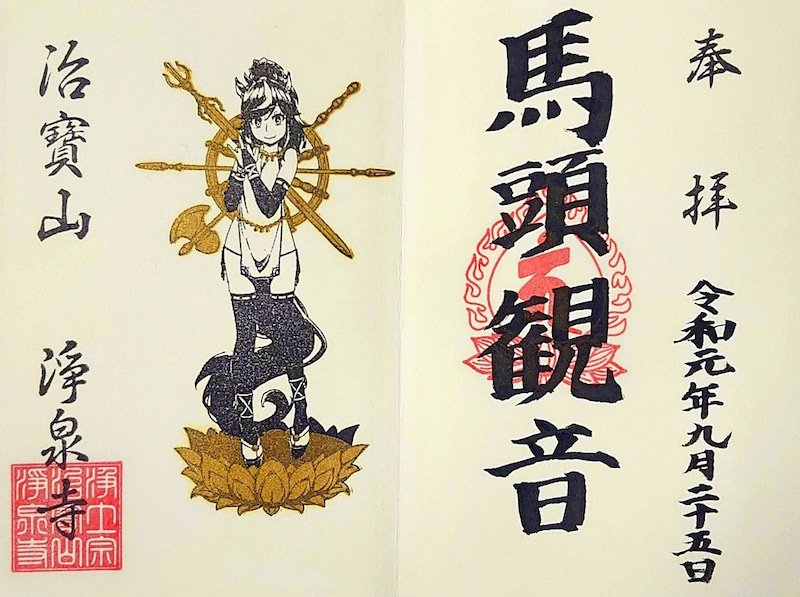 奉拝
令和元年九月二十五日
馬頭観音
治寶山 浄泉寺
浄土宗
治宝山
浄泉寺